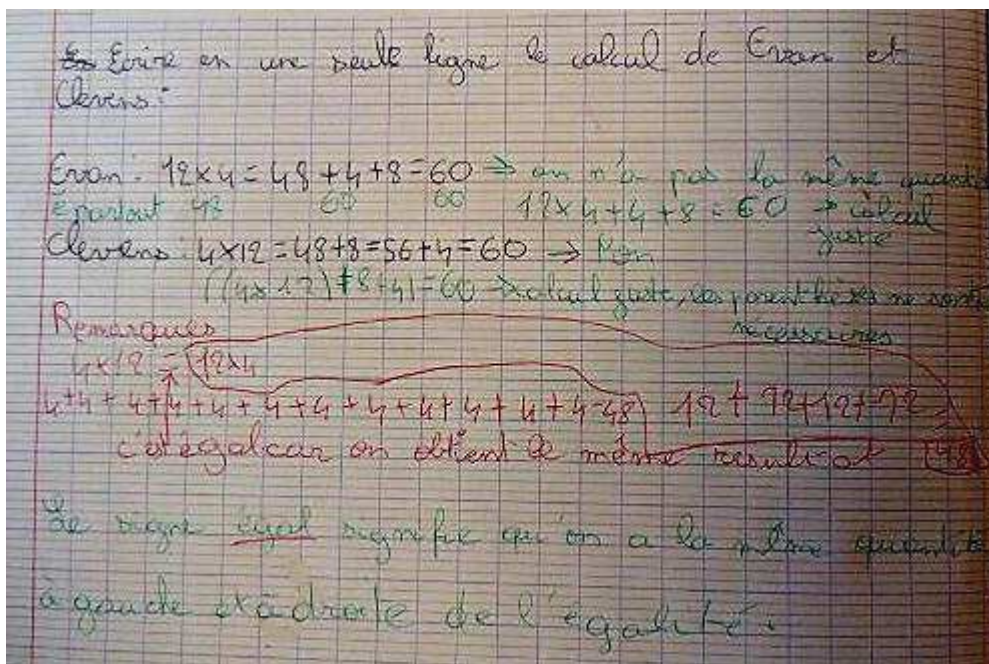 Ecrire en une seule ligne le calcul de Evan et
Clevens :
Evan : 12×4 = 48 + 4 + 8 = 60 → on n'a pas la même quantité
partout 48 60 60 12×4+4+8 = 60 → calcul
juste
Clevens : 4×12 = 48+8 = 56+4 = 60 → Non
((4×12)+8+4) = 60 → calcul juste, les parenthèses ne sont
nécessaires
Remarques
4×12 = 12×4
4+4+4+4+4+4+4+4+4+4+4+4=48 12+12+12+12 =
c'est égal car on obtient le même resultat 48
Le signe égal signifie qu'on a la même quantité
à gauche et à droite de l'égalité.